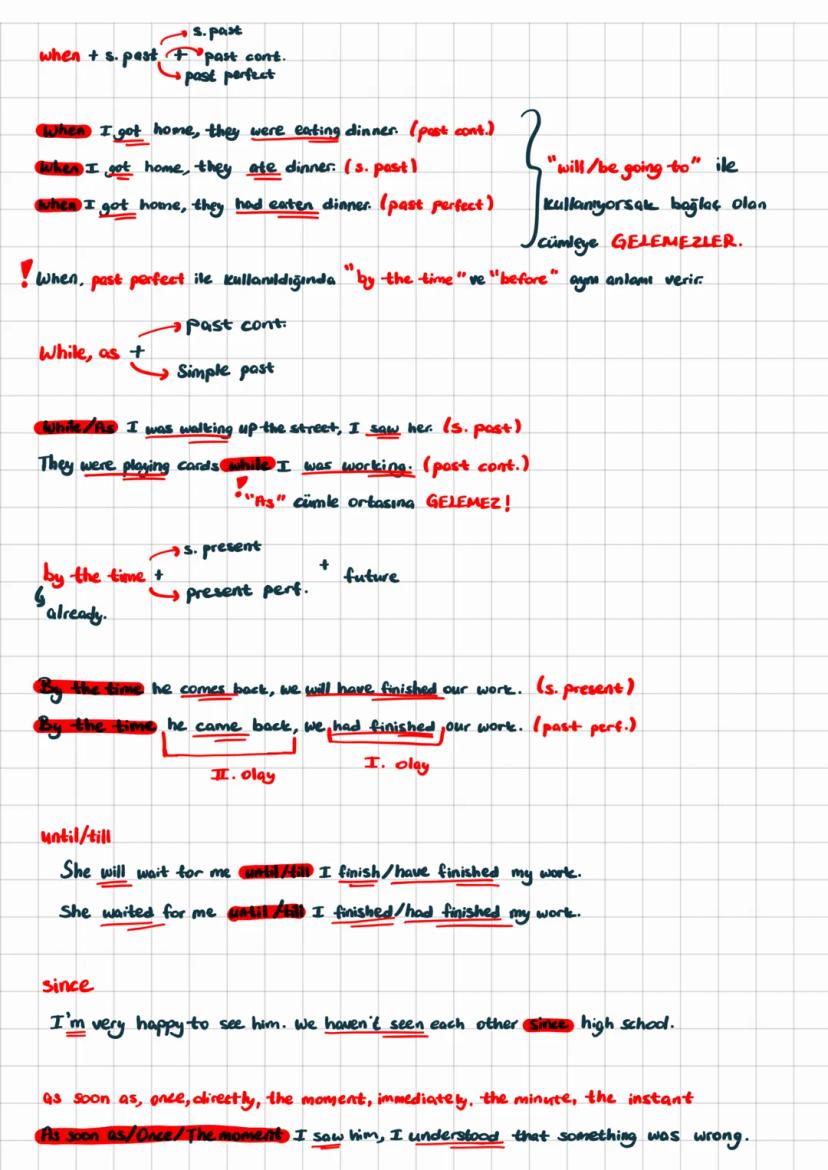 s. past
when + s. past + past cont.
past perfect
When I got home, they were eating dinner. (past cont.)
When I got home, they ate dinner. (s. past)
When I got home, they had eaten dinner. (past perfect)
"will/be going to" ile
kullanıyorsak bağlaç olan
cümleye GELEMEZLER.
! When, past perfect ile kullanıldığında "by the time" ve "before" aynı anlamı verir.
past cont.
While, as +
Simple past
While/As I was walking up the street, I saw her. (s. past)
They were playing cards while I was working. (past cont.)
! "As" cümle ortasına GELEMEZ!
s. present
by the time + + future
present perf.
already.
By the time he comes back, we will have finished our work. (s. present)
By the time he came back, we had finished our work. (past perf.)
II. olay I. olay
until/till
She will wait for me until/till I finish/have finished my work.
She waited for me until/till I finished/had finished my work.
since
I'm very happy to see him. We haven't seen each other since high school.
as soon as, once, directly, the moment, immediately, the minute, the instant
As soon as/Once/The moment I saw him, I understood that something was wrong.